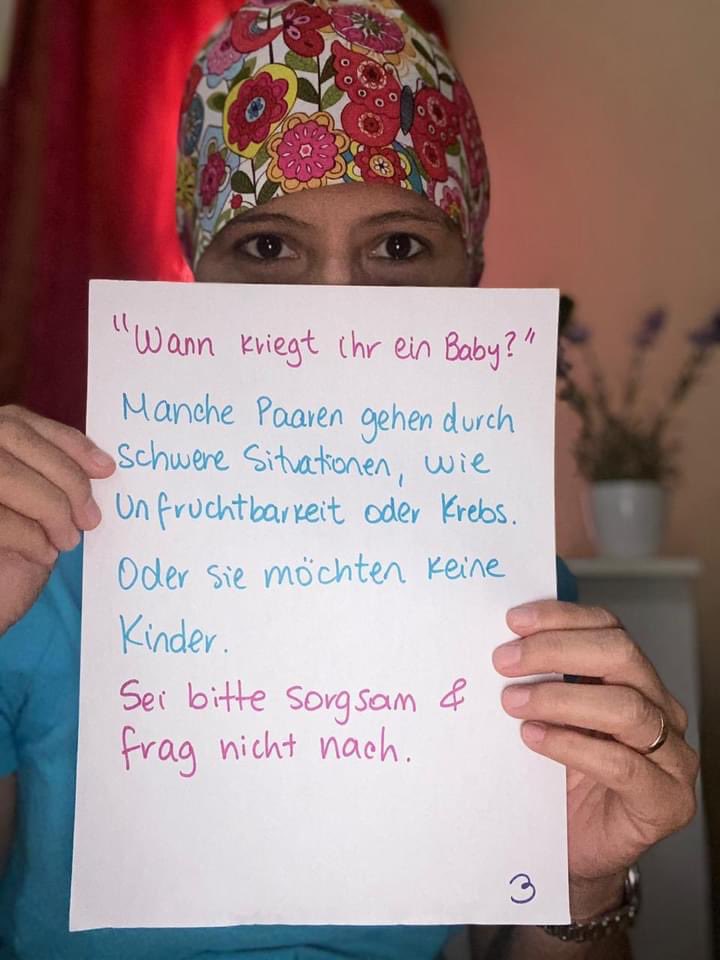 "Wann kriegt ihr ein Baby?"
Manche Paaren gehen durch
schwere Situationen, wie
Unfruchtbarkeit oder Krebs.
Oder sie möchten keine
Kinder.
Sei bitte sorgsam &
frag nicht nach.
3